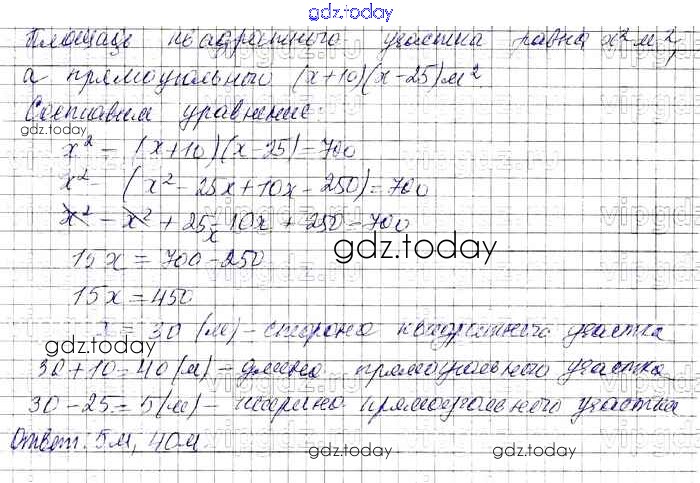 gdz.today
Площадь квадратного участка равна x² м²,
а прямоугольного (x+10)(x-25) м²
Составим уравнение:
gdz.today
x² - (x+10)(x-25)=700
x² - (x² - 25x+10x - 250)=700
x² - x² + 25x - 10x + 250 = 700
gdz.today
15x = 700-250
15x = 450
x = 30 (м) - сторона квадратного участка
gdz.today
30+10=40 (м) - длина прямоугольного участка
30-25=5 (м) - ширина прямоугольного участка
Ответ: 5м, 40м.
gdz.today
gdz.today